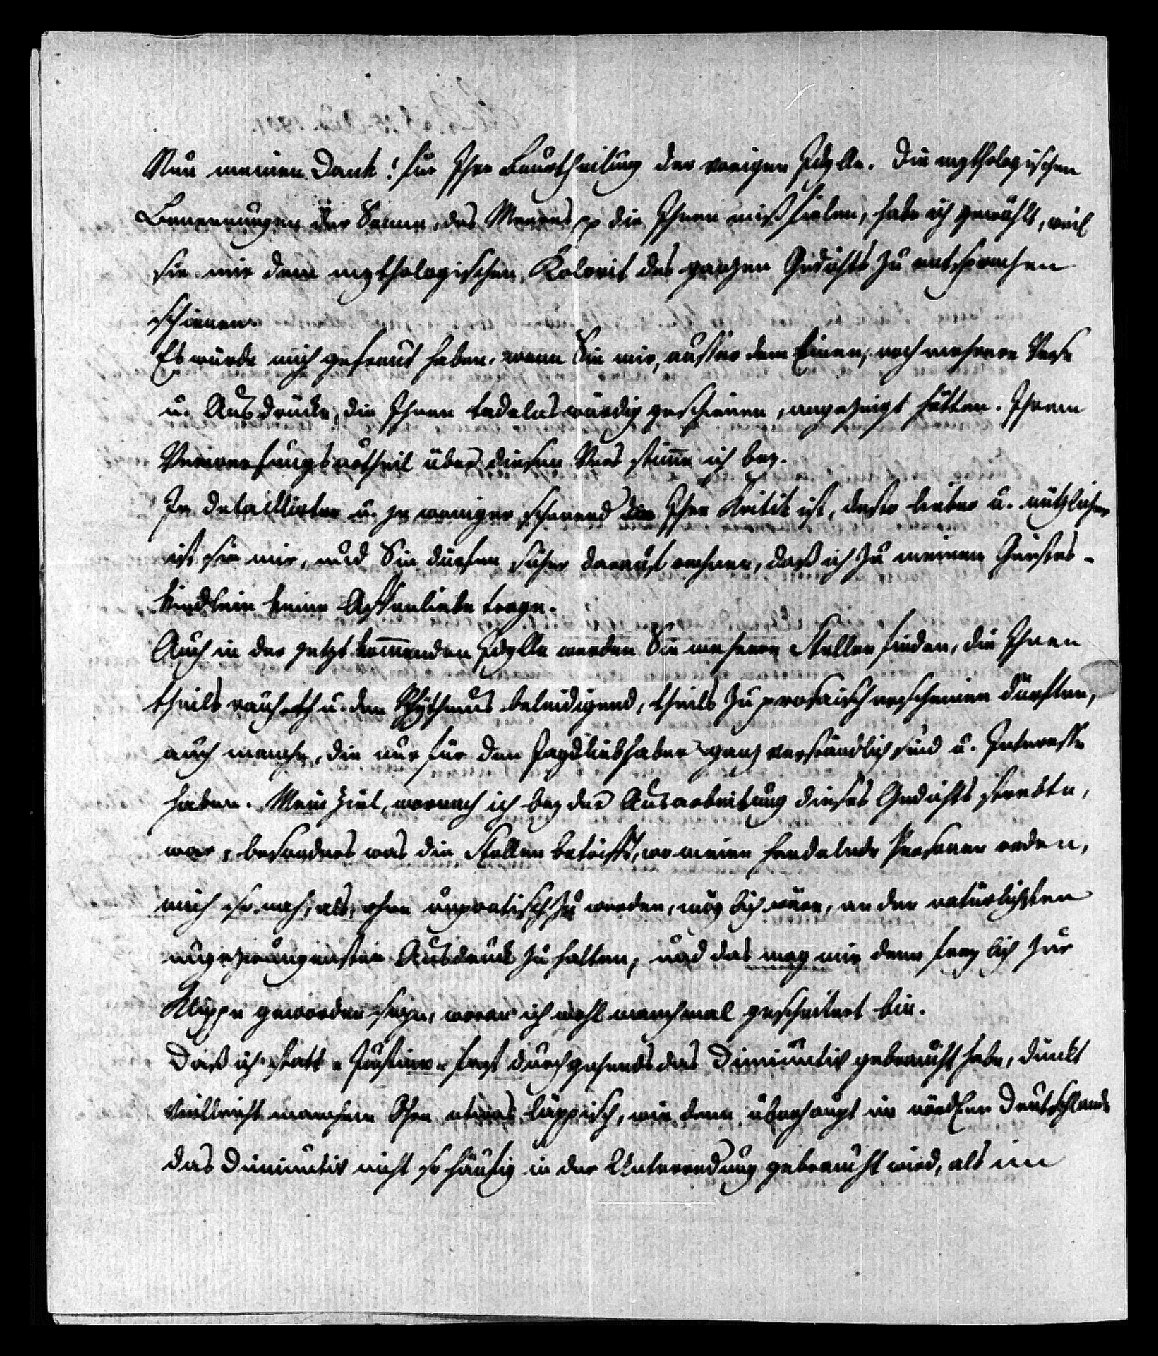 Nun meinen Dank! für Ihre Beurtheilung der vorigen Idylle. Die mythologischen
Benennungen der Sonne, des Meeres pp die Ihnen mißfielen, habe ich gewählt, weil
sie mir dem mythologischen Kolorit des ganzen Gedichts zu entsprechen
schienen.
Es würde mich gefreut haben, wenn Sie mir, außer dem Einen, noch mehrere Verse
u. Ausdrücke, die Ihnen tadelnswürdig geschienen, angezeigt hätten. Ihrem
Verwerfungsurtheil über diesen Vers stimme ich bey.
Je detaillirter u. je weniger schonend Ihre Kritik ist, desto lieber u. nützlicher
ist sie mir, und Sie dürfen sicher darauf rechnen, daß ich zu meinen Geistes-
kindlein keine Affenliebe trage.
Auch in der jetzt kommenden Idylle werden Sie mehrere Stellen finden, die Ihnen
theils rauh u. den Rhythmus beleidigend, theils zu prosaisch erscheinen dürften,
auch manche, die nur für den Jagdliebhaber ganz verständlich sind u. Interesse
haben. Mein Ziel, wornach ich bey der Ausarbeitung dieses Gedichts strebte,
war, besonders was die Stellen betrifft, wo meine handelnde Personen reden,
mich so nah, als, ohne unpoetisch zu werden, möglich wäre, an den natürlichsten
ungezwungensten Ausdruck zu halten, und das mag mir denn freylich zur
Klippe geworden seyn, woran ich wohl manchmal gescheitert bin.
Daß ich statt fast durchgehends das Diminutiv gebraucht habe, dünkt
vielleicht manchem Ohr etwas läppisch, wie denn überhaupt im nördlichen Deutschlande
das Diminutiv nicht so häufig in der Unterredung gebraucht wird, als im